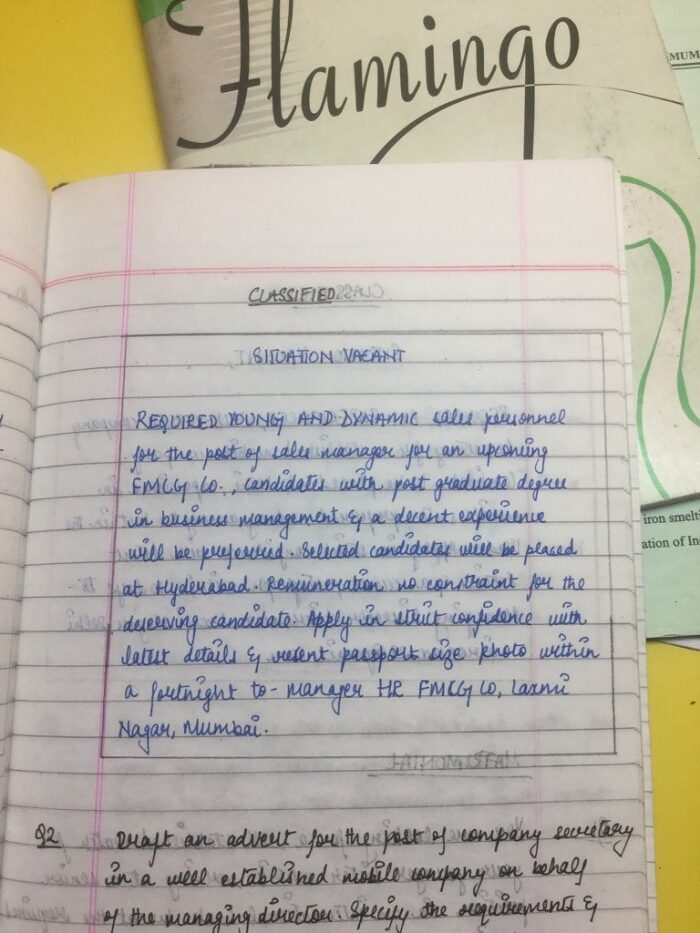 Flamingo
MUM
CLASSIFIED
SITUATION VACANT
REQUIRED YOUNG AND DYNAMIC sales personnel
for the post of sales manager for an upcoming
FMCG CO., Candidates with post graduate degree
in business management & a decent experience
will be preferred. Selected candidates will be placed
at Hyderabad. Remuneration no constraint for the
deserving candidate. Apply in strict confidence with
latest details & recent passport size photo within
a fortnight to- manager HR FMCG CO, Laxmi
Nagar, Mumbai.
iron smelti
ation of In
MATRIMONIAL
Q2 Draft an advert for the post of company secretary
in a well established mobile company on behalf
of the managing director. Specify the requirements &